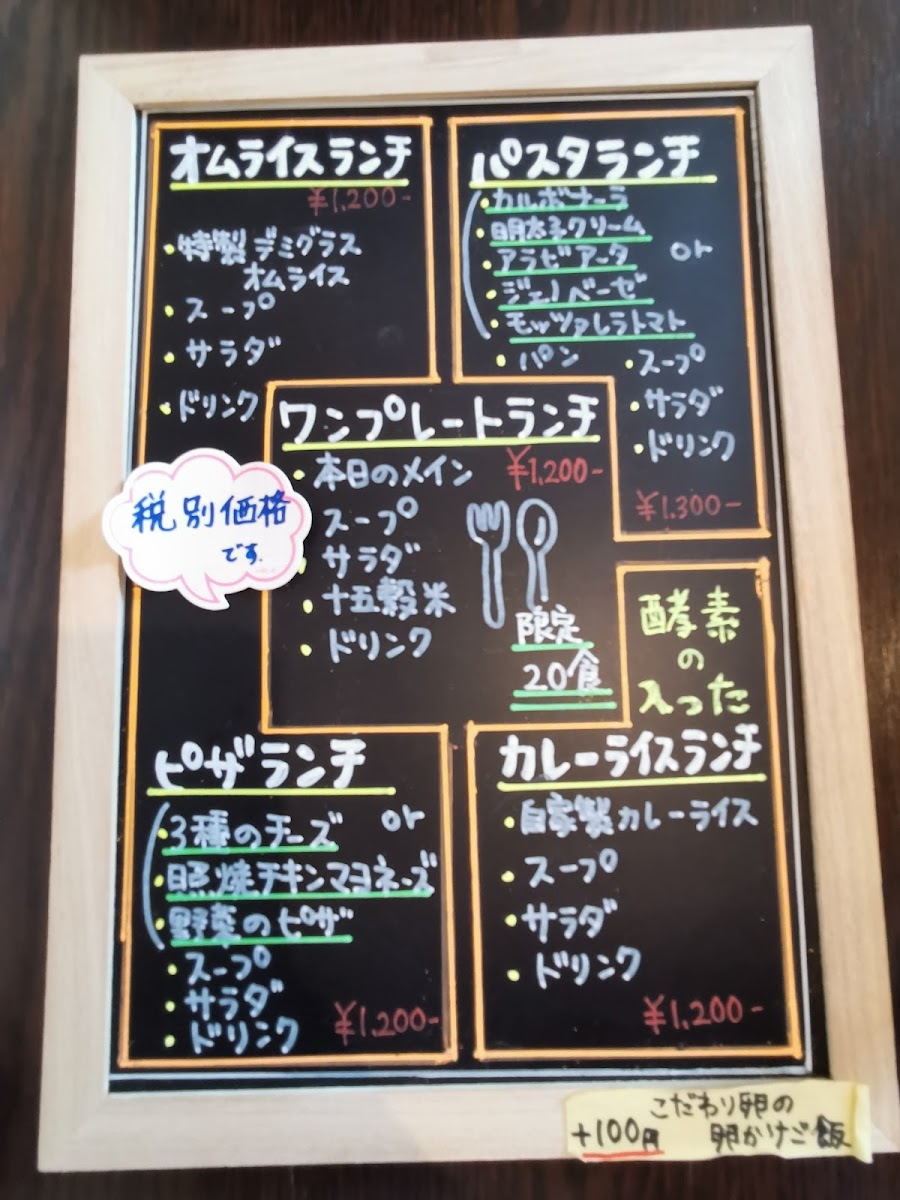 オムライスランチ
¥1,200-
・特製デミグラス
オムライス
・スープ
・サラダ
・ドリンク
パスタランチ
・カルボナーラ
・明太子クリーム
or
・アラビアータ
・ジェノベーゼ
・モッツァレラトマト
・パン
・スープ
・サラダ
・ドリンク
¥1,300-
ワンプレートランチ
・本日のメイン
¥1,200-
・スープ
・サラダ
・十五穀米
・ドリンク
限定
20食
税別価格
です.
ピザランチ
・3種のチーズ
or
・照焼チキンマヨネーズ
・野菜のピザ
・スープ
・サラダ
・ドリンク
¥1,200-
酵素
の
入った
カレーライスランチ
・自家製カレーライス
・スープ
・サラダ
・ドリンク
¥1,200-
こだわり卵の
+100円 卵かけご飯